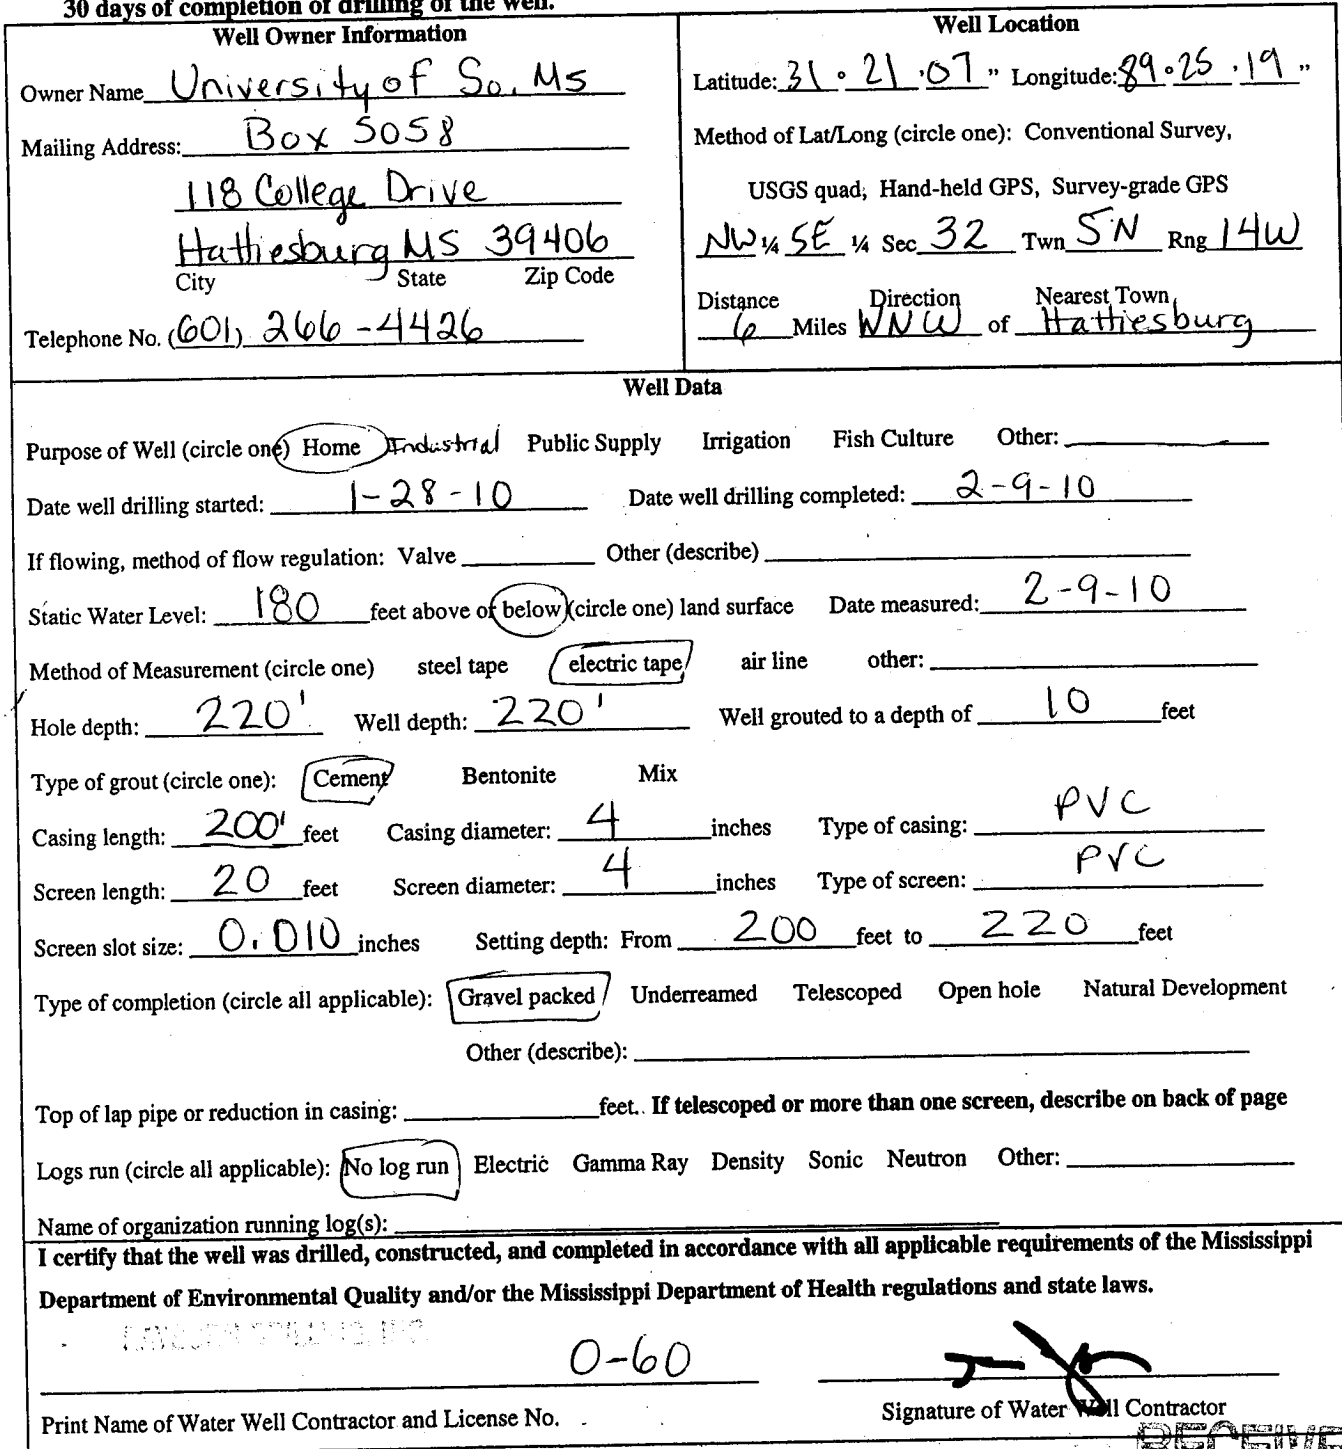 30 days of completion of drilling of the well.
Well Owner Information
Owner Name University of So. Ms
Mailing Address: Box 5058
118 College Drive
Hattiesburg MS 39406
City State Zip Code
Telephone No. (601) 266-4426
Well Location
Latitude: 31 ° 21 ' 07 " Longitude: 89 ° 25 ' 19 "
Method of Lat/Long (circle one): Conventional Survey,
USGS quad, Hand-held GPS, Survey-grade GPS
NW ¼ SE ¼ Sec 32 Twn 5N Rng 14W
Distance Direction Nearest Town
6 Miles WNW of Hattiesburg
Well Data
Purpose of Well (circle one) Home Industrial Public Supply Irrigation Fish Culture Other:
Date well drilling started: 1-28-10 Date well drilling completed: 2-9-10
If flowing, method of flow regulation: Valve Other (describe)
Static Water Level: 180 feet above or below (circle one) land surface Date measured: 2-9-10
Method of Measurement (circle one) steel tape electric tape air line other:
Hole depth: 220' Well depth: 220' Well grouted to a depth of 10 feet
Type of grout (circle one): Cement Bentonite Mix
Casing length: 200' feet Casing diameter: 4 inches Type of casing: PVC
Screen length: 20 feet Screen diameter: 4 inches Type of screen: PVC
Screen slot size: 0.010 inches Setting depth: From 200 feet to 220 feet
Type of completion (circle all applicable): Gravel packed Underreamed Telescoped Open hole Natural Development
Other (describe):
Top of lap pipe or reduction in casing: feet. If telescoped or more than one screen, describe on back of page
Logs run (circle all applicable): No log run Electric Gamma Ray Density Sonic Neutron Other:
Name of organization running log(s):
I certify that the well was drilled, constructed, and completed in accordance with all applicable requirements of the Mississippi
Department of Environmental Quality and/or the Mississippi Department of Health regulations and state laws.
0-60
Print Name of Water Well Contractor and License No.
Signature of Water Well Contractor